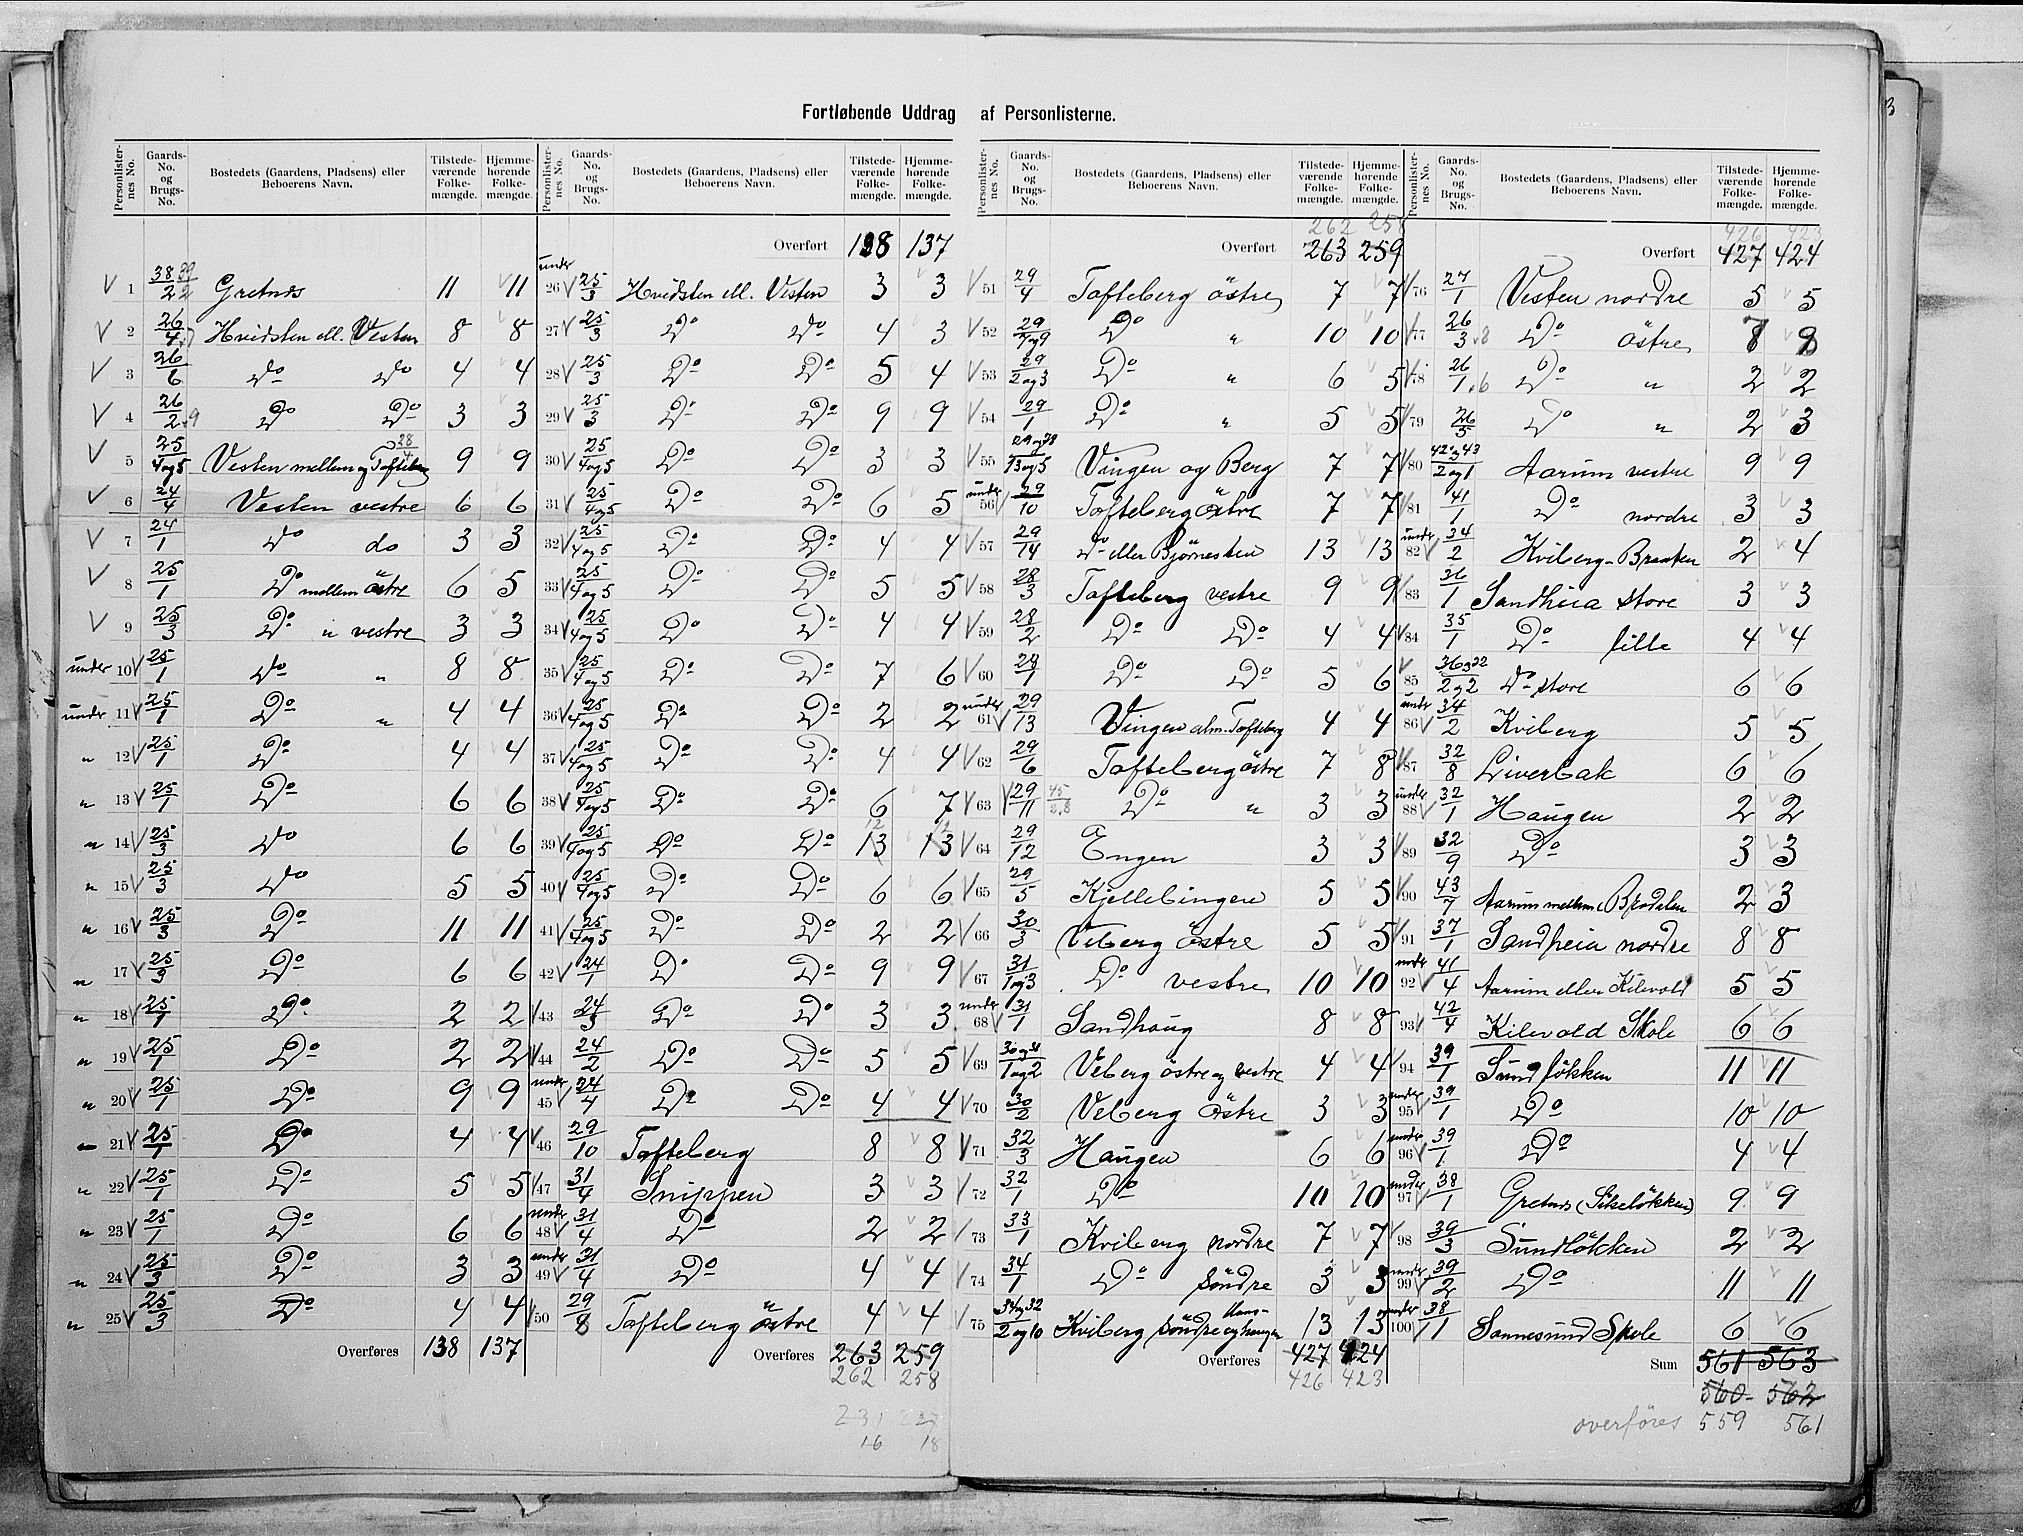 Fortløbende Uddrag af Personlisterne.
Personlister-nes No. | Gaards-No. og Brugs-No. | Bostedets (Gaardens, Pladsens) eller Beboerens Navn. | Tilstede-værende Folke-mængde. | Hjemme-hørende Folke-mængde.
V 1 38/2 39/2 Gretnes 11 11
V 2 26/4 Hvidsten ell. Vesten 8 8
V 3 26/6 Do Do 4 4
V 4 26/2.9 Do Do 3 3
V 5 25/4og5 Vesten mellem og Tofteberg 28/4 9 9
V 6 24/4 Vesten vestre 6 6
V 7 24/1 Do do 3 3
V 8 25/1 Do mellem östre 6 5
V 9 25/3 Do " vestre 3 3
under 10 V 25/1 Do " 8 8
under 11 V 25/1 Do " 4 4
" 12 V 25/1 Do 4 4
" 13 V 25/1 Do 6 6
" 14 V 25/3 Do 6 6
" 15 V 25/3 Do 5 5
" 16 V 25/3 Do 11 11
" 17 V 25/3 Do 6 6
" 18 V 25/1 Do 2 2
" 19 V 25/1 Do 2 2
" 20 V 25/1 Do 9 9
" 21 V 25/1 Do 4 4
" 22 V 25/1 Do 5 5
" 23 V 25/1 Do 6 6
" 24 V 25/3 Do 3 3
" 25 V 25/3 Do 4 4
Overføres 138 137
Personlister-nes No. | Gaards-No. og Brugs-No. | Bostedets (Gaardens, Pladsens) eller Beboerens Navn. | Tilstede-værende Folke-mængde. | Hjemme-hørende Folke-mængde.
Overført 138 137
under 26 V 25/3 Hvidsten ell. Vesten 3 3
27 V 25/3 Do Do 4 3
28 V 25/3 Do Do 5 4
29 V 25/3 Do Do 9 9
30 V 25/4og5 Do Do 3 3
31 V 25/4og5 Do Do 6 5
32 V 25/4og5 Do Do 4 4
33 V 25/4og5 Do Do 5 5
34 V 25/4og5 Do Do 4 4
35 V 25/4og5 Do Do 7 6
36 V 25/4og5 Do Do 2 2
37 V 25/4og5 Do Do 4 4
38 V 25/4og5 Do Do 6 7
39 V 25/4og5 Do Do 13 12 13 12
40 V 25/4og5 Do Do 6 6
41 V 25/4og5 Do Do 2 2
42 V 24/1 Do Do 9 9
V 43 24/3 Do Do 3 3
V 44 24/2 Do Do 5 5
under 45 V 24/4 Do Do 4 4
V 46 29/10 Tofteberg 8 8
V 47 31/4 Snippen 3 3
under 48 V 31/4 Do 2 2
under 49 V 31/4 Do 4 4
V 50 29/8 Tofteberg östre 4 4
Overføres 263 259
262 258
231 227
16 18
Personlister-nes No. | Gaards-No. og Brugs-No. | Bostedets (Gaardens, Pladsens) eller Beboerens Navn. | Tilstede-værende Folke-mængde. | Hjemme-hørende Folke-mængde.
262 258
Overført 263 259
V 51 29/4 Tofteberg östre 7 7
V 52 29/7og9 Do " 10 10
V 53 29/2og3 Do " 6 5
V 54 29/1 Do " 5 5
V 55 29og28/13og5 Vingen og Berg 7 7
under 56 V 29/10 Tofteberg östre 7 7
V 57 29/14 Do eller Bjørnesten 13 13
V 58 28/3 Tofteberg vestre 9 9
V 59 28/2 Do Do 4 4
V 60 28/1 Do Do 5 6
under 61 V 29/13 Vingen alm. Tofteberg 4 4
V 62 29/6 Tofteberg östre 7 8
V 63 V 29/11 45/2.8 Do " 3 3
V 64 29/12 Engen 3 3
V 65 29/5 Kjellebingen 5 5
V 66 30/3 Veberg östre 5 5
V 67 31/1og3 Do vestre 10 10
under 68 V 31/1 Sandhaug 8 8
V 69 30og31/1og2 Veberg östre og vestre 4 4
V 70 30/2 Veberg östre 3 3
V 71 32/3 Haugen 6 6
V 72 32/1 Do 10 10
V 73 33/1 Kviberg nordre 7 7
V 74 34/1 Do söndre 3 3
V 75 34og32/2og10 Kviberg söndre og haugen 13 13
Overføres 427 424
426 423
Personlister-nes No. | Gaards-No. og Brugs-No. | Bostedets (Gaardens, Pladsens) eller Beboerens Navn. | Tilstede-værende Folke-mængde. | Hjemme-hørende Folke-mængde.
426 423
Overført 427 424
V 76 27/1 Vesten nordre 5 5
V 77 26/3.8 Do östre 8 9
V 78 26/1.6 Do " 2 2
V 79 26/5 Do " 2 3
V 80 42og43/2og1 Aarum vestre 9 9
V 81 41/1 Do nordre 3 3
under 82 V 34/2 Kviberg-Braaten 2 4
V 83 36/1 Sandheia store 3 3
V 84 35/1 Do lille 4 4
V 85 36og32/2og2 Do store 6 6
under 86 V 34/2 Kviberg 5 5
V 87 32/8 Liverbak 6 6
under 88 V 32/1 Haugen 2 2
V 89 32/9 Do 3 3
V 90 43/7 Aarum mellem Bradalen 2 3
V 91 37/1 Sandheia nordre 8 8
under 92 V 41/4 Aarum eller Kilevold 5 5
93 V 42/4 Kilevold Skole 6 6
V 94 39/1 Sundløkken 11 11
under 95 V 39/1 Do 10 10
under 96 V 39/1 Do 4 4
under 97 V 38/1 Gretnes (Sikeløkken) 9 9
V 98 39/3 Sundløkken 2 2
under 99 V 39/2 Do 11 11
under 100 V 38/1 Sannesund Skole 6 6
Sum 561 563
560 562
overføres 559 561